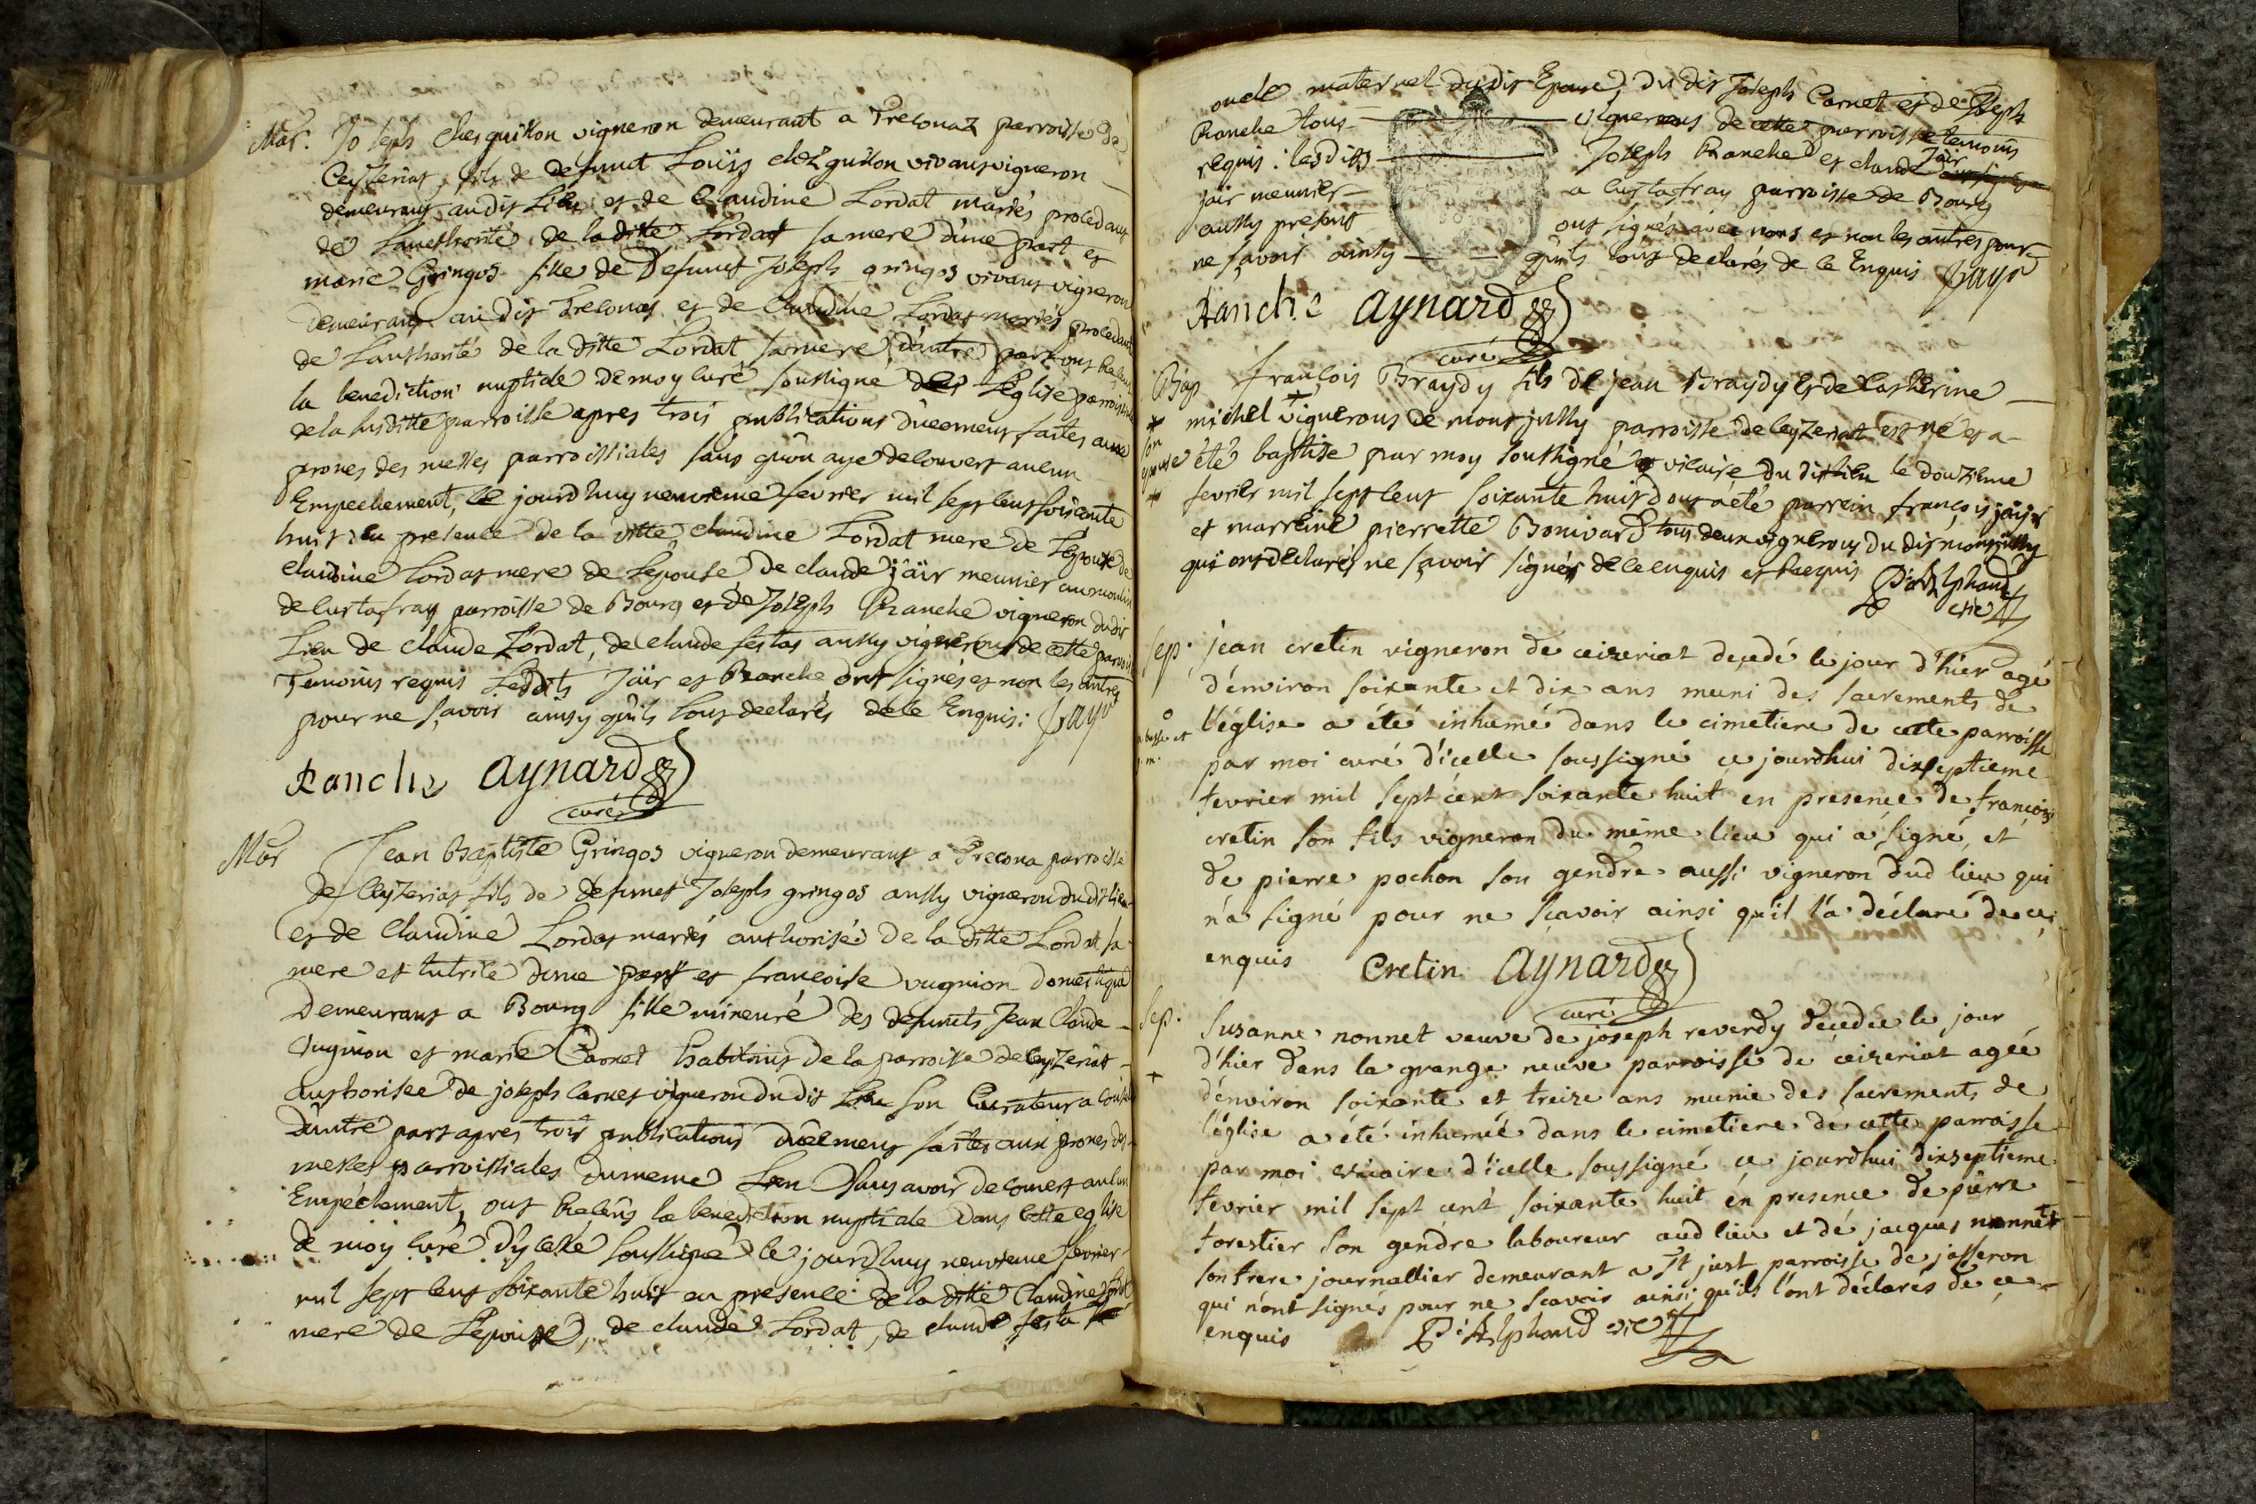 Mar. Joseph Chesguillon vigneron demeurant a Treconaz parroisse de
Ceyzeriat, fils de defunct Loüis chez guillon vivant vigneron
demeurant audit Lieu et de Claudine Lordat mariés procedant
de Lauthorité de laditte Lordat sa mere d'une part et
marie Gringoz fille de Defunct Joseph gringoz vivant vigneron
demeurant au dit Treconas et de Claudine Lordat mariés procedant
de Lauthorité de la ditte Lordat sa mere d'autre part ont
la benediction nuptiale de moy curé soussigné Leglise
de la susditte parroisse apres trois publications düement faites aux
prones des messes parroissiales sans qu'on aye decouvert aucun
Empechement, le jourdhuy neuvieme fevrier mil sept cent soixante
huit en presence de la ditte claudine Lordat mere de Lepoux de
claudine Lordat mere de Lepouse, de claude jaïr meunier au moulin
de Custafray parroisse de Bourg et de Joseph Ranche vigneron dudit
Lieu de claude Lordat, de claude festas aussy vignerons de cette
Temoins requis Lesdits Jaïr et Ranche ont signés et non les autres
pour ne sçavoir ainsy quils lont declarés de ce Enquis:
Ranche Aynard
curé
Mar Jean Baptiste Gringoz vigneron demeurant a Trecona parroisse
de Ceyzeriat fils de defunct Joseph gringoz aussy vigneron du dit lieu
et de Claudine Lordat mariés authorisé de la ditte Lordat sa
mere et tutrice dune part et françoise vugnion domestique
Demeurant a Bourg fille mineure des defuncts Jean Claude
Vugnion et marie Carnet habitans de la parroisse de Ceyzeriat
authorisée de joseph Carnet vigneron du dit Lieu son Curateur a
Dautre part apres trois publications düement faites aux prones des
messes parroissiales du meme Lieu sans avoir decouvert aucun
Empêchement, ont Recûs la benediction nuptiale dans cette eglise
de moy curé D'ycelle soussigné le jourdhuy neuvieme fevrier
mil sept cent soixante huit en presence de la ditte Claudine
mere de Lepoux, de claude Lordat, de claude festa
oncle maternel du dit Epoux, du dit Joseph Carnet et de Joseph
Ranche tous vignerons de cette parroisse temoins
requis: lesdits Joseph Ranche et claude Jaïr
jaïr meunier a Custafray parroisse de Bourg
aussy présent ont signés avec nous et non les autres pour
ne sçavoir ainsy qu'ils lont declarés de ce Enquis
Ranche Aynard
curé
Bap françois Braydy fils de jean Braydy et de Catherine
michel + vignerons de montjully parroisse de Ceyzeriat est né et a
+ son epouse + été baptise par moy soussigné vicaire du dit Lieu le douzieme
fevrier mil sept cent soixante huit dont a été parrein françois
et marreine pierrette Bonivard tous deux vignerons du dit montjully
qui ont declarés ne sçavoir signér de ce enquis et Requis P: Alphand
vic
Sep. jean cretin vigneron de ceizeriat decedé le jour d'hier agé
d'environ soixante et dix ans muni des sacrements de
l'église a été inhumé dans le cimetiere de cette parroisse
par moi curé d'icelle soussigné ce jourdhui dixseptieme
fevrier mil sept cent soixante huit en presence de françois
cretin son fils vigneron du même lieu qui a signé, et
de pierre pochon son gendre aussi vigneron dud lieu qui
n'a signé pour ne sçavoir ainsi qu'il l'a declaré de ce
enquis Cretin Aynard
curé
Sep. Susanne nonnet veuve de joseph reverdy decedée le jour
d'hier dans la grange neuve parroisse de ceizeriat agée
+ d'environ soixante et treize ans munie des sacrements de
l'église a été inhumée dans le cimetiere de cette parroisse
par moi vicaire d'icelle soussigné ce jourdhui dixseptieme
fevrier mil sept cent soixante huit en presence de pierre
forestier son gendre laboureur aud lieu et de jacques nonnet
son frere journallier demeurant a St just parroisse de jasseron
qui n'ont signés pour ne sçavoir ainsi qu'ils l'ont déclarés de ce
enquis P: Alphand vic